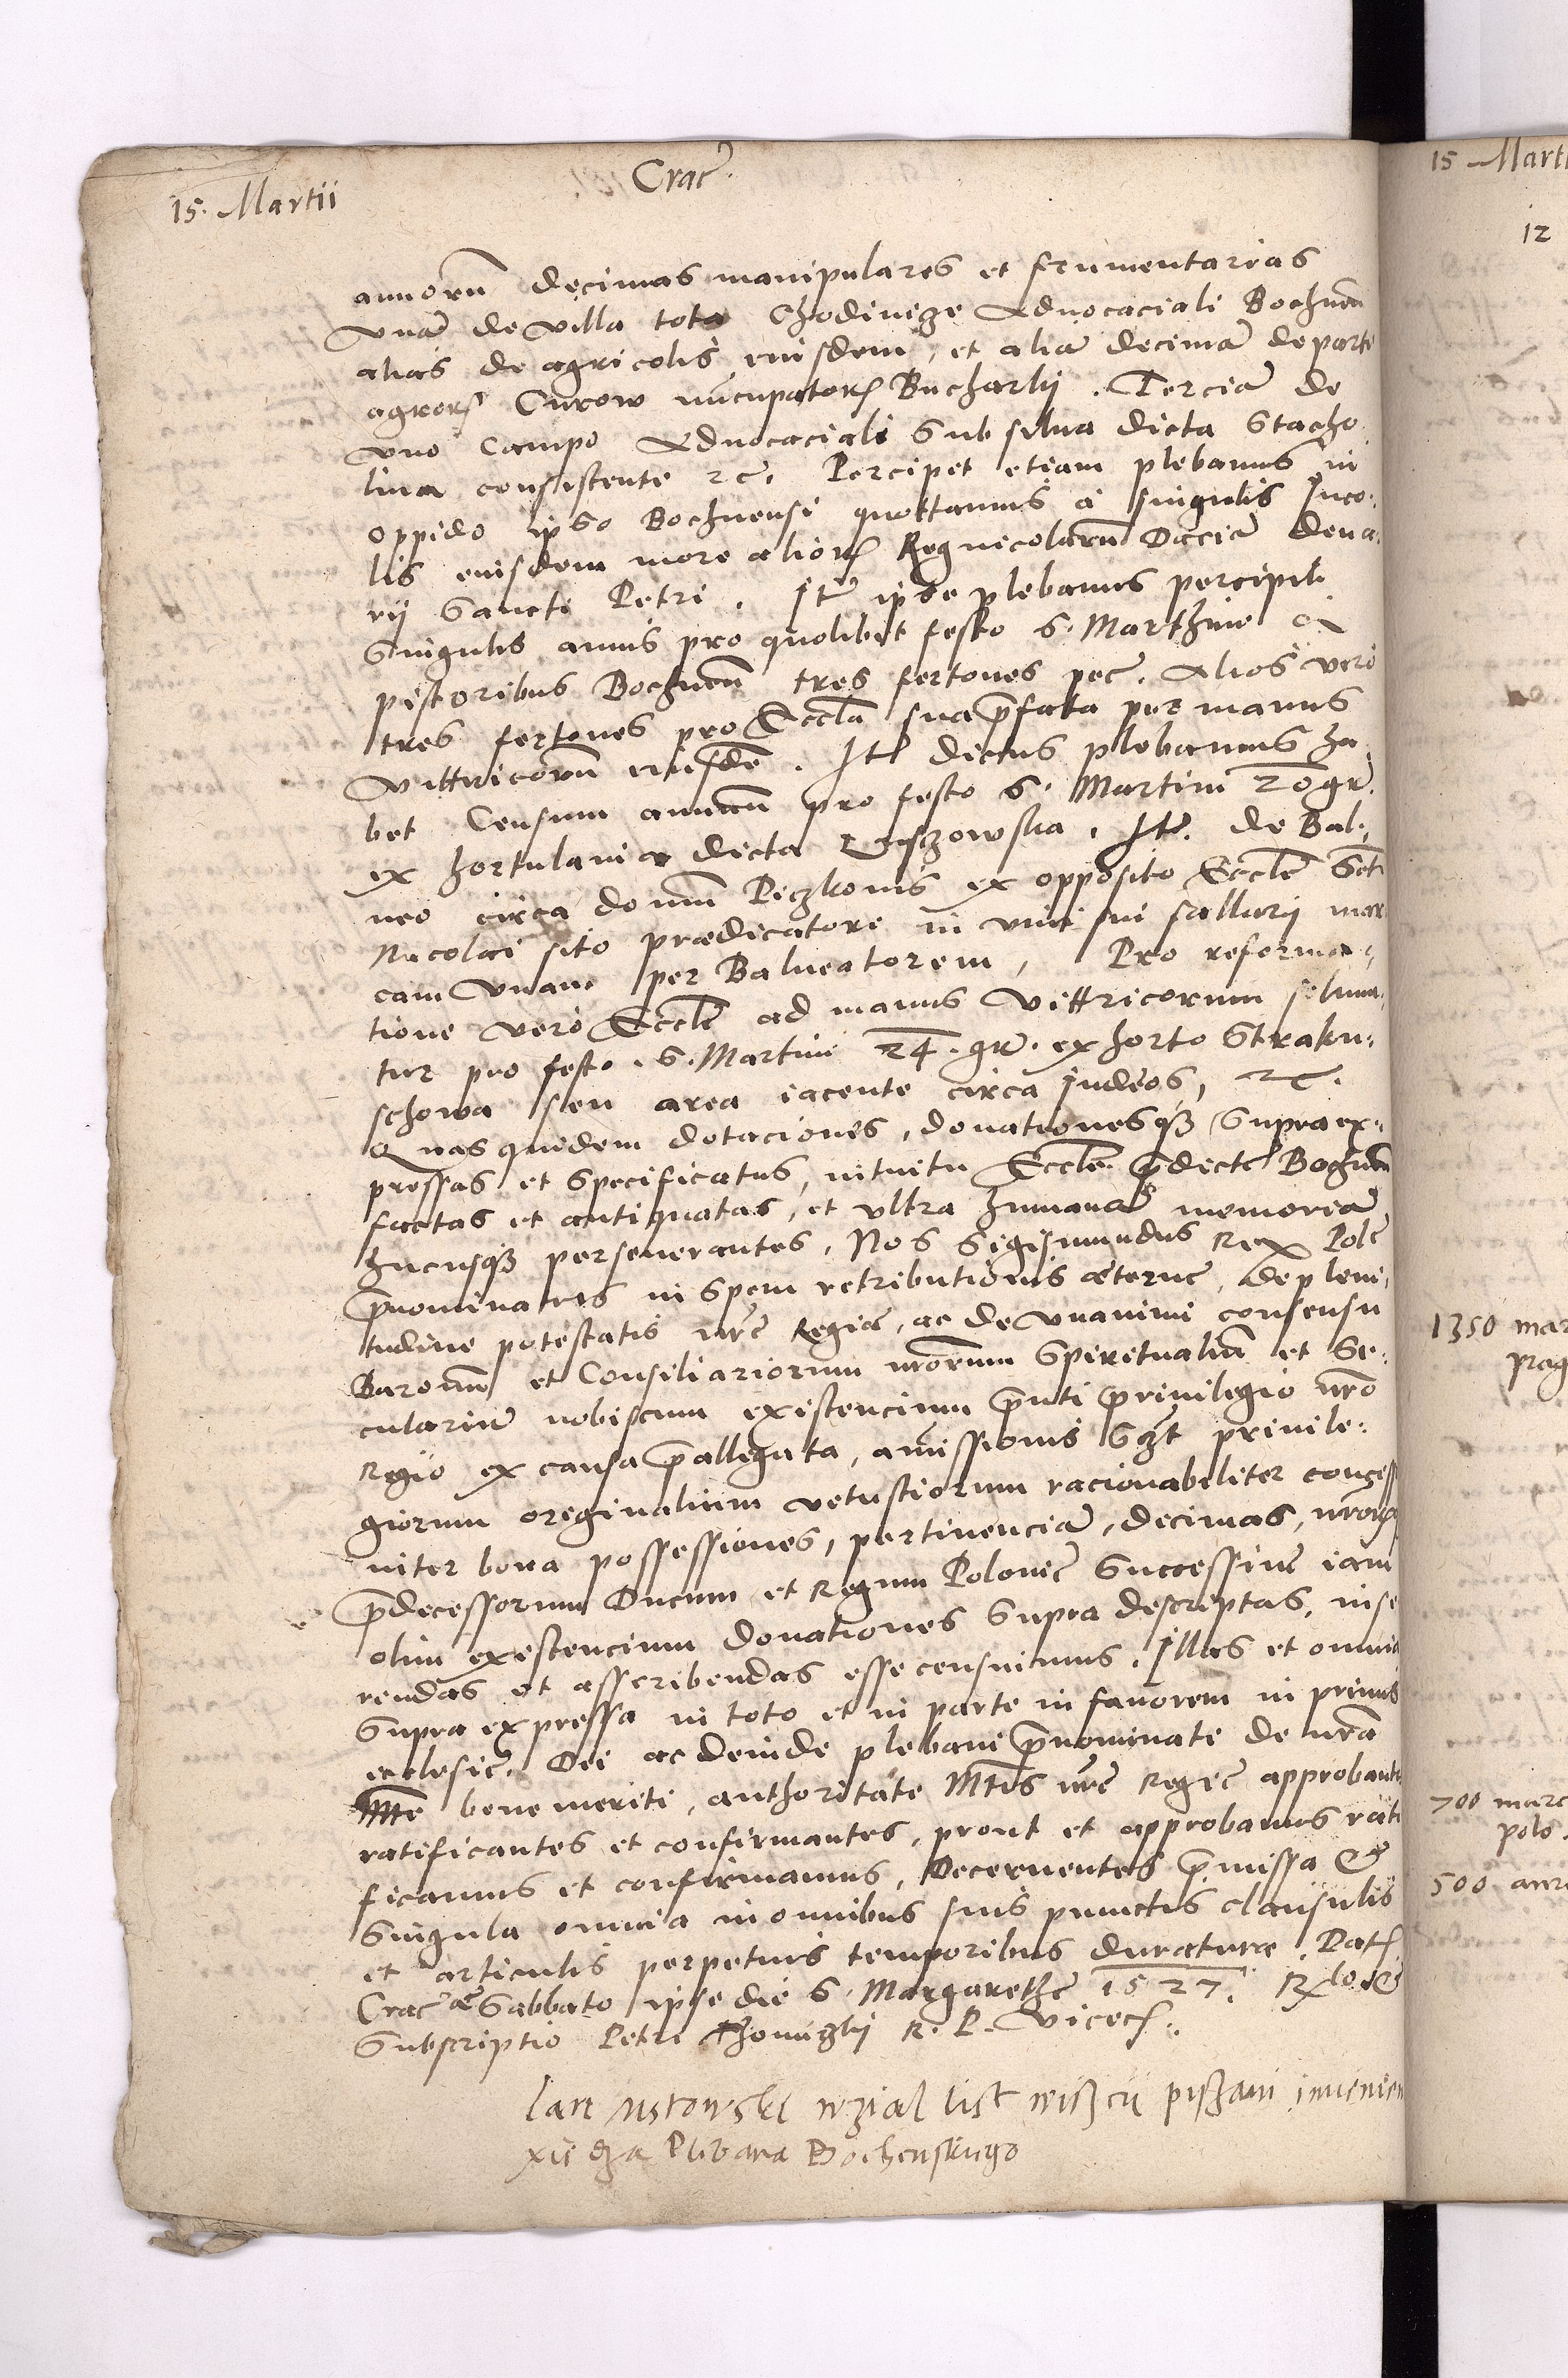 Crac.
15. Martii
annorũ decimas manipulares et frumentarias
vnã de villa tota Chodinicze Aduocaciali Bochnen̄
alias de agricolis eiusdem, et aliã decimã de parte
agror̄ Curow nũcupator̄ Bucharky. Terciã de
vno campo Aduocaciali sub silua dicta Stacho
lina consistente etc. Percipet etiam plebanus in
oppido ipso Bochnensi quottannis à singulis Inco:
lis eiusdem more alior̄ Regnicolarũ Daciã dena:
rij Sancti Petri. Itē ipse plebanus percipit
singulis annis pro quolibet festo S. Marthini a
pistoribus Bochnen̄ tres fertones pec. Alios vero
tres fertones pro Eccl̄a sua p̄fata per manus
vittricorũ eiusdē. Itē dictus plebanus ha
bet Censum annuũ pro festo S. Martini 20 gr.
ex hortulania dicta Vischowska. Itē. de Bal:
neo circa domũ Peczkonis ex opposito Eccl̄e Sctī
Nicolai sito prædicatori in vim sui sallarij mar
cam vnam per Balneatorem, Pro reforma:
tione vero Eccl̄e ad manus vittricorum soluun
tur pro festo. S. Martini 24. gr. ex horto Straku:
schowa seu area iacente circa Judeos, etc.
Quas quidem dotaciones, donationesq̃ supra ex:
pressas et specificatas, intuitu Eccl̄e p̄dicte Bochnen̄
factas et antiquatas, et vltra humanã memoriã
hucusq̃ perseuerantes, Nos Sigismundus Rex Pole
p̄nominatus in spem retributionis æterne, de pleni
tudine potestatis nr̄e Regiæ, ac de vnanimi consensu
Baronũ et Consiliariorum nr̄orum Spiritualiũ et Se:
culariũ nobiscum existencium p̄nti priuilegio nr̄o
Regio ex causa p̄allegata, amissionis sczt priuile:
giorum originalium vetustiorum racionabiliter congess
niter bona possessiones, pertinenciã, decimas, nr̄orq̃
p̄decessorum Ducum et Regum Polonie successiuè iam
olim existencium donationes supra descriptas, inse
rendas et asscribendas esse censuimus. Illas et omnia
supra expressa in toto et in parte in fauorem in primis
ecclesie Dei ac deinde plebani p̄nominati de nr̄a
Mt̄e bene meriti, authoritate Mt̄is nr̄e Regie approbantes
ratificantes et confirmantes, prout et approbamus rati
ficamus et confirmamus, Decernentes p̄missa et
singula omnia in omnibus suis punctis clausulis
et articulis perpetuis temporibus duratura. Dat̄.
Crac̄ æ Sabbato ipse die S. Margarethe 1527. Rło. et
Subscriptio Petri Thomiczky R. P. Vicec̄.
Jan Ustowski wzial list wiszej piszani imieniem
xiedza Plebana Bochenskiego
15 Marti
12
1350 mar
prag
700 marc
polo.
500 aure